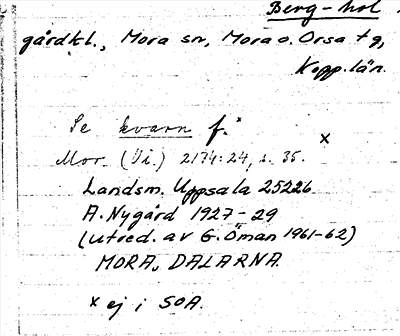 Berg-hol
gårdkl., Mora sn, Mora o. Orsa tg,
Kopp. län.
Se kvarn f. x
Mor. (Vi.) 2174:24, s. 35.
Landsm. Uppsala 25226
A. Nygård 1927-29
(utred. av G. Öman 1961-62)
MORA, DALARNA.
x ej i SOA.